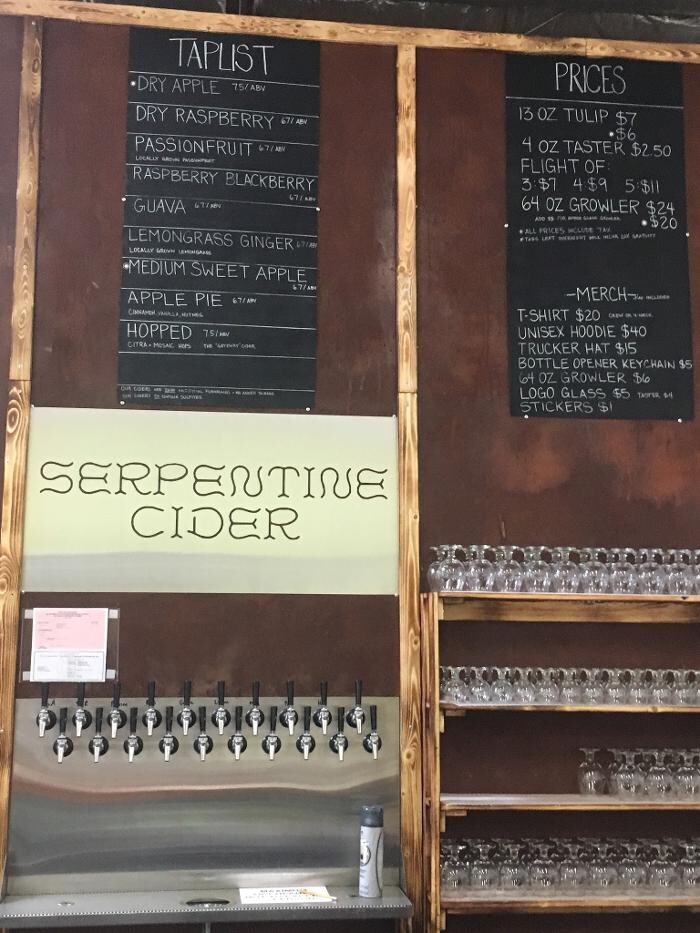 TAPLIST
*DRY APPLE 7.5% ABV
DRY RASPBERRY 6.7% ABV
PASSIONFRUIT 6.7% ABV
LOCALLY GROWN PASSIONFRUIT
RASPBERRY BLACKBERRY
6.7% ABV
GUAVA 6.7% ABV
LEMONGRASS GINGER 6.7% ABV
LOCALLY GROWN LEMONGRASS
*MEDIUM SWEET APPLE
6.7% ABV
APPLE PIE 6.7% ABV
CINNAMON, VANILLA, NUTMEG
HOPPED 7.5% ABV
CITRA + MOSAIC HOPS THE "GATEWAY" CIDER
PRICES
13 OZ TULIP $7
*$6
4 OZ TASTER $2.50
FLIGHT OF:
3:$7 4:$9 5:$11
64 OZ GROWLER $24
*$20
*ALL PRICES INCLUDE TAX
-MERCH- TAX INCLUDED
T-SHIRT $20 CREW OR V-NECK
UNISEX HOODIE $40
TRUCKER HAT $15
BOTTLE OPENER KEYCHAIN $5
64 OZ GROWLER $6
LOGO GLASS $5 TASTER $4
STICKERS $1
SERPENTINE
CIDER